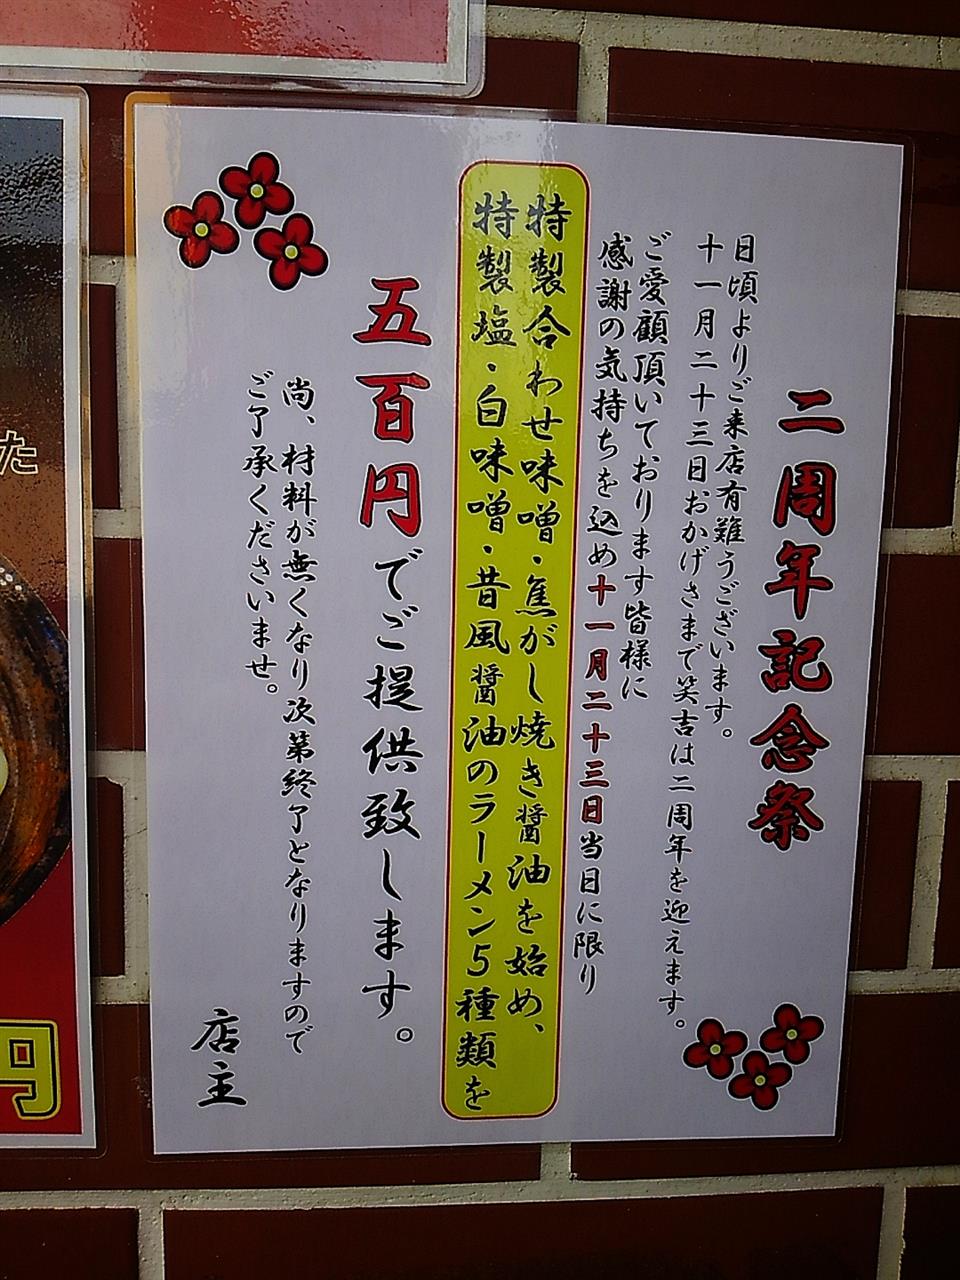 二周年記念祭
日頃よりご来店有難うございます。
十一月二十三日おかげさまで笑吉は二周年を迎えます。
ご愛顧頂いております皆様に
感謝の気持ちを込め十一月二十三日当日に限り
特製合わせ味噌・焦がし焼き醤油を始め、
特製塩・白味噌・昔風醤油のラーメン5種類を
五百円でご提供致します。
尚、材料が無くなり次第終了となりますので
ご了承くださいませ。
店主
た
円